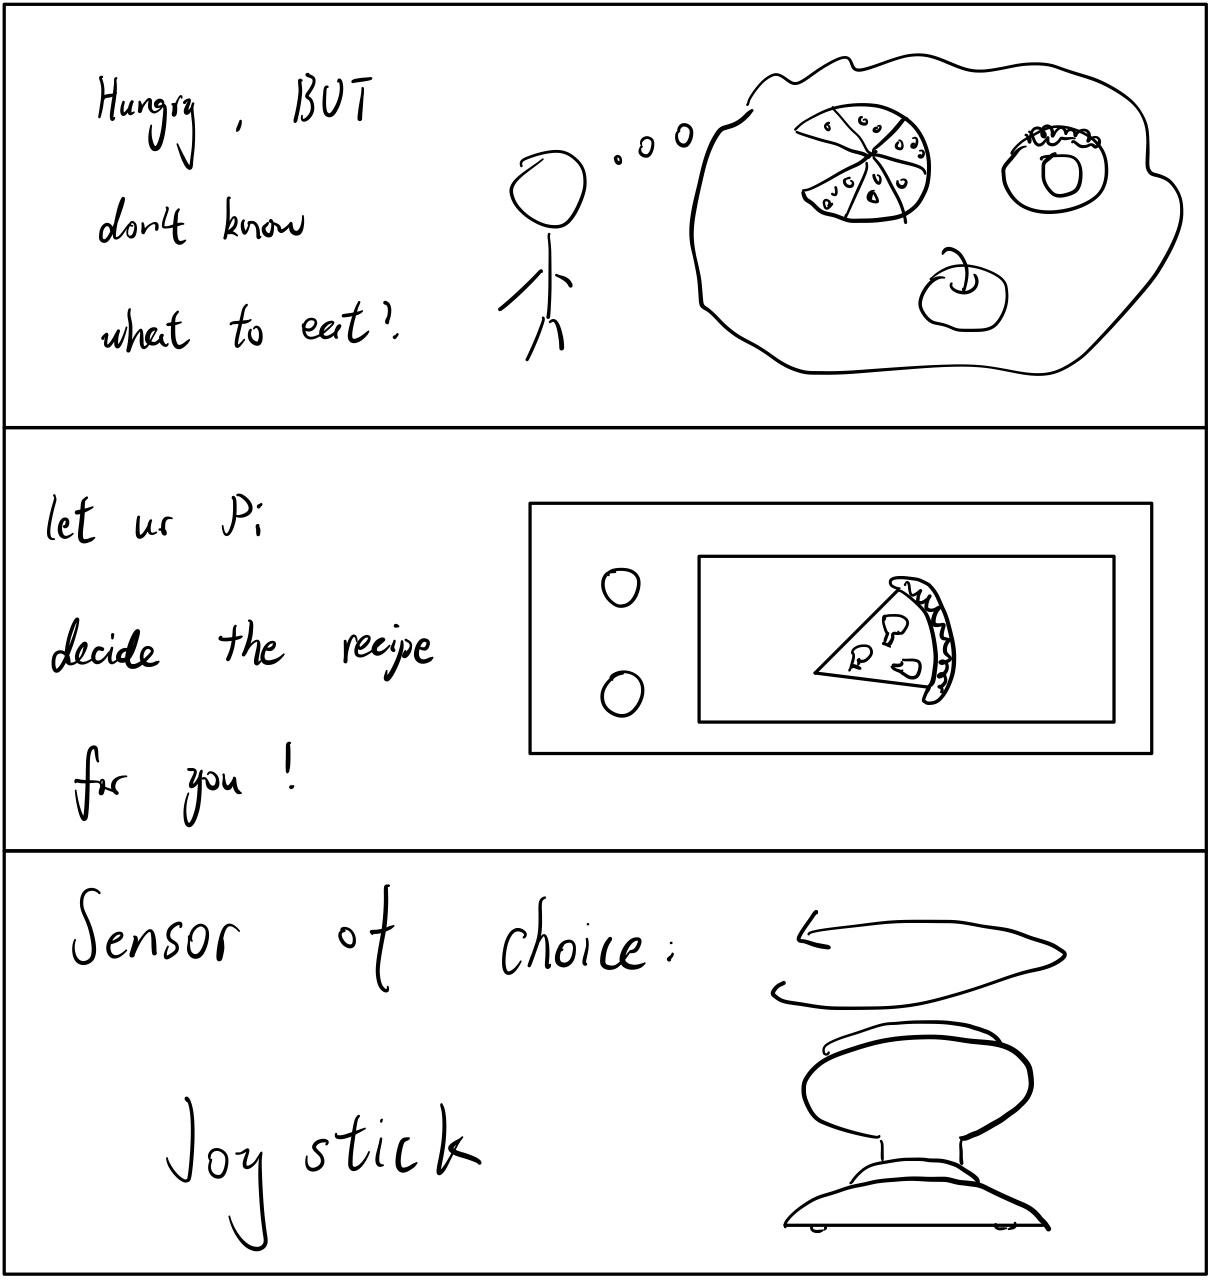 Hungry, BUT
don't know
what to eat?
let ur Pi
decide the recipe
for you!
Sensor of choice:
Joystick